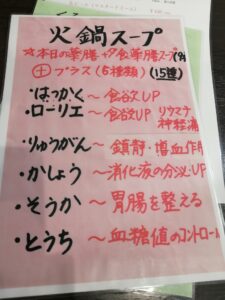 火鍋スープ
☆本日の薬膳 食薬膳スープ(9種
⊕プラス(6種類)(15種)
・はっかく〜食欲UP
・ローリエ〜食欲UP リウマチ
神経痛
・りゅうがん〜鎮静・増血作用
・かしょう〜消化液の分泌・UP
・そうか〜胃腸を整える
・とうち〜血糖値のコントロール